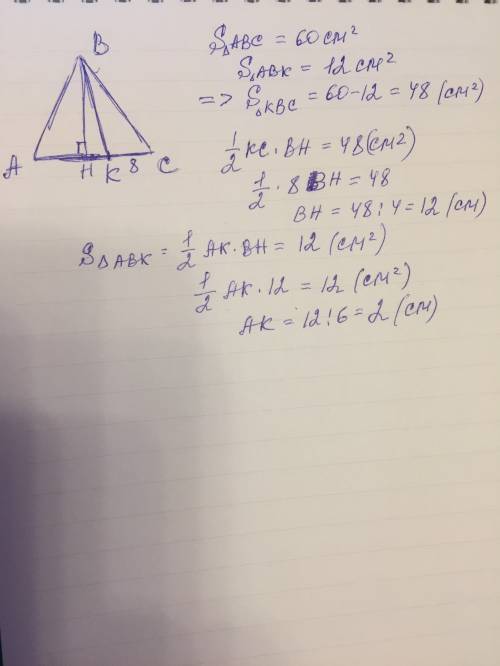 B
A
H
K
8
C
S△ABC = 60 см²
S△ABK = 12 см²
=> S△KBC = 60-12 = 48 (см²)
1/2 KC · BH = 48 (см²)
1/2 · 8 BH = 48
BH = 48 : 4 = 12 (см)
S△ABK = 1/2 AK · BH = 12 (см²)
1/2 AK · 12 = 12 (см²)
AK = 12 : 6 = 2 (см)